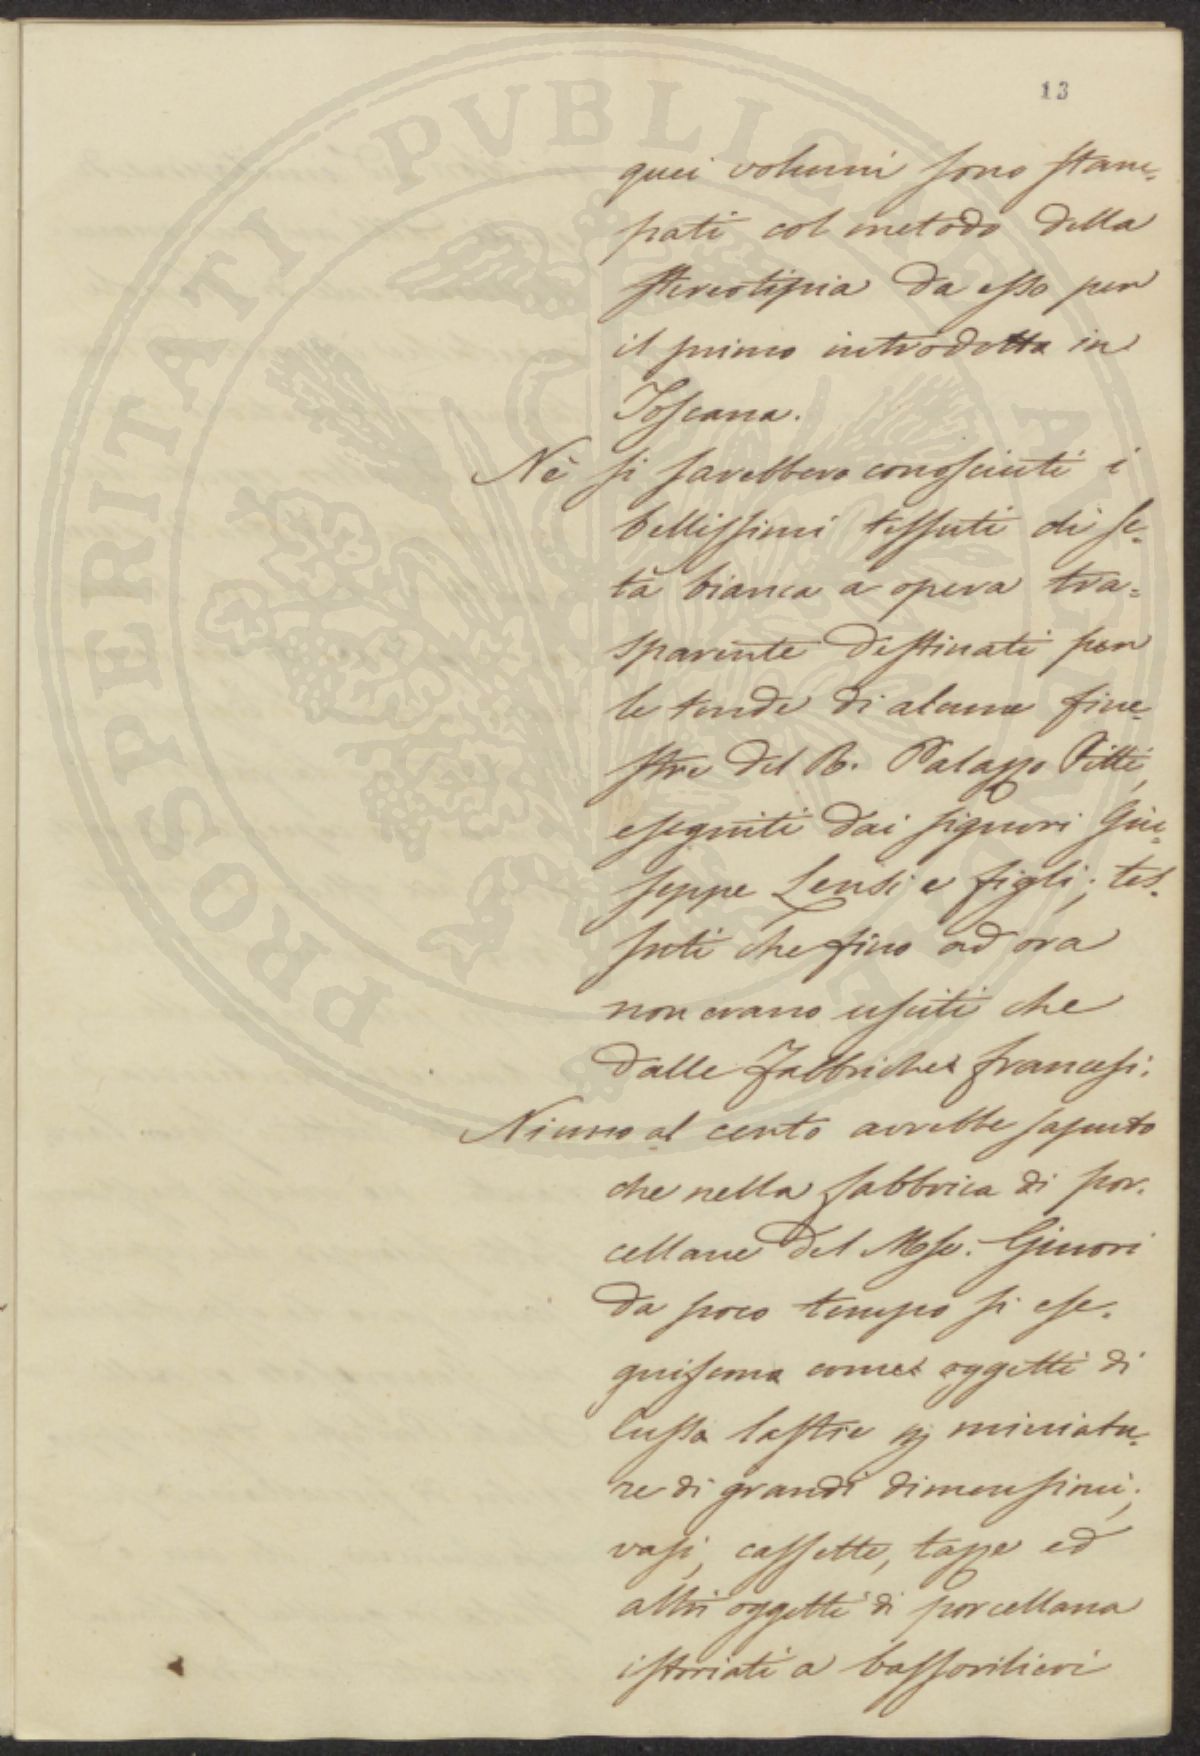 13
quei volumi sono stam-
pati col metodo della
stereotipia da esso per
il primo introdotta in
Toscana.
Nè si sarebbero conosciuti i
bellissimi tessuti di se-
ta bianca a opera tra=
sparente destinati per
le tende di alcune fine-
stre del R. Palazzo Pitti,
eseguiti dai signori Giu-
seppe Lensi e figli; tes-
suti che fino ad ora
non erano usciti che
dalle fabbriche francesi.
Niuno al certo avrebbe saputo
che nella fabbrica di por-
cellane del Mse. Ginori
da poco tempo si ese-
guiscono come oggetti di
lusso lastre p miniatu-
re di grandi dimensioni;
vasi, cassette, tazze ed
altri oggetti di porcellana
istoriati a bassorilievi
PROSPERITATI PVBLICAE AVGENDAE